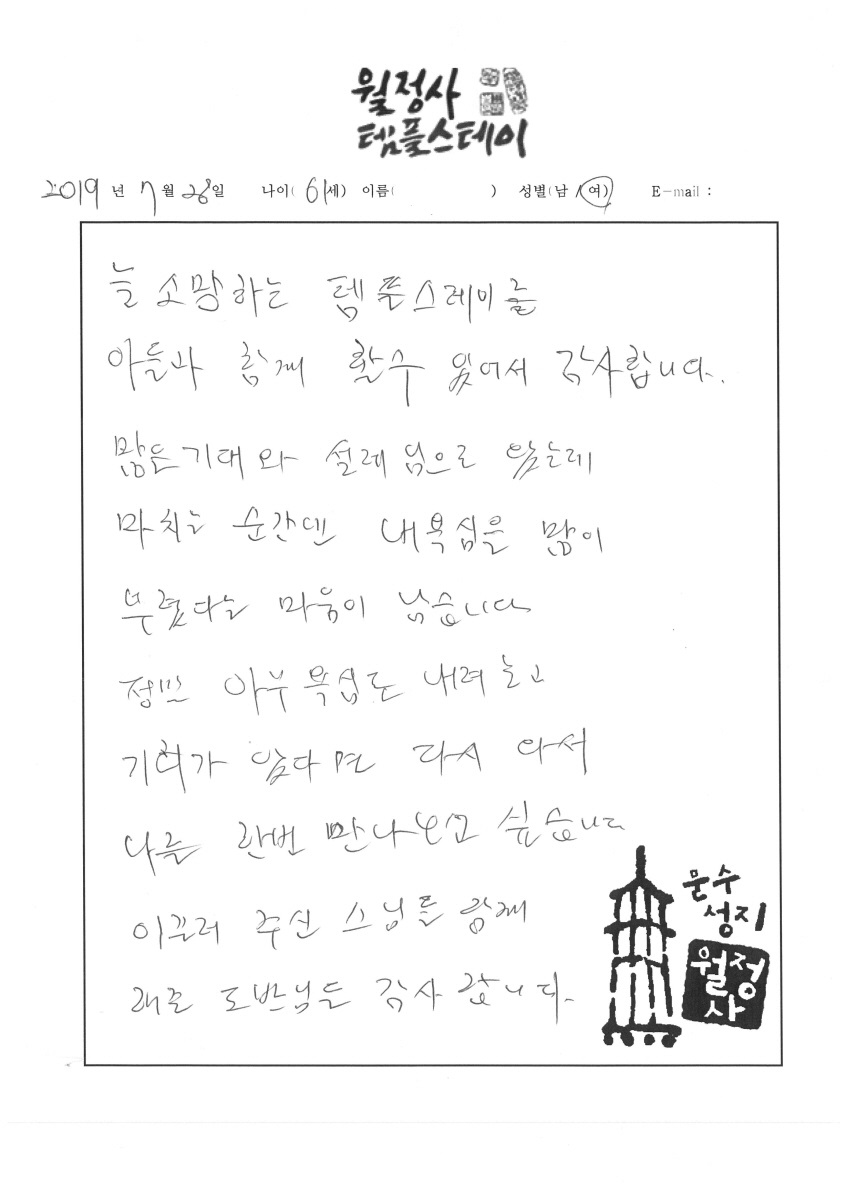 월정사
템플스테이
2019년 7월 28일 나이( 61세) 이름( ) 성별(남 / 여) E-mail :
늘 소망하는 템플스테이를
아들과 함께 할수 있어서 감사합니다.
많은기대와 설레임으로 왔는데
마치는 순간엔 내욕심을 많이
부렸다는 마음이 남습니다
정말 아무 욕심도 내려놓고
기회가 있다면 다시 와서
나를 한번 만나보고 싶습니다
이끌러 주신 스님들 함께
해준 도반님들 감사 합니다.
문수
성지
월정
사